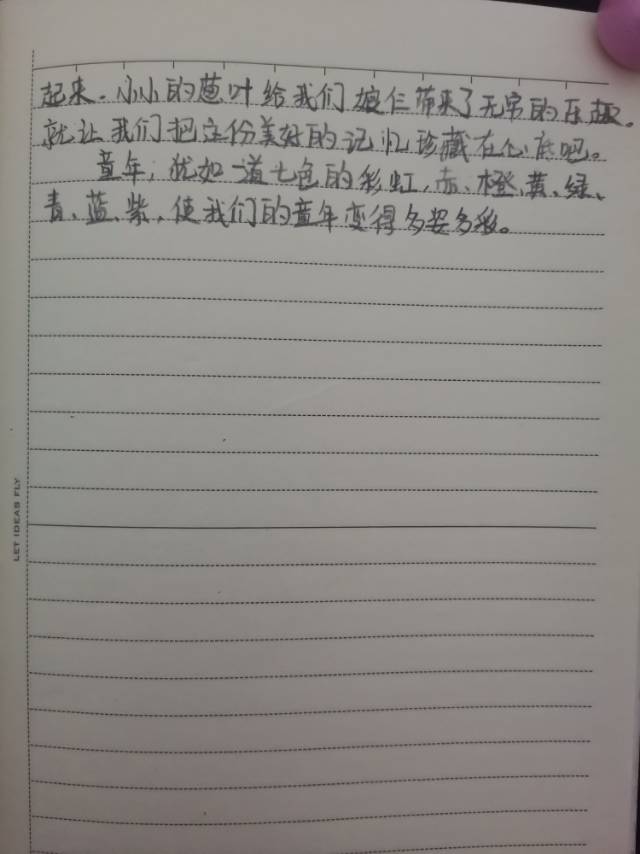 起来。小小的葱叶给我们娘仨带来了无穷的乐趣。
就让我们把这份美好的记忆珍藏在心底吧。
童年,犹如一道七色的彩虹,赤、橙、黄、绿、
青、蓝、紫,使我们的童年变得多姿多彩。
LET IDEAS FLY